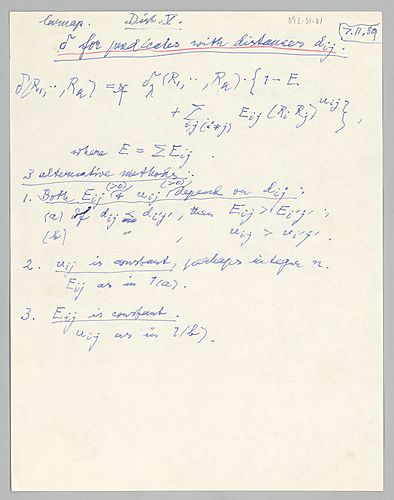 Carnap. Dist. V. 092-31-01
7.11.59
δ for predicates with distances dij.
δ(R1, ··, Rk) =df δλ(R1, ··, Rk) · {1 – E
+ Σij(i≠j) Eij (Ri Rj)^uij},
where E = ΣEij.
3 alternative methods:
1. Both Eij (>0) & uij (>0) depend on dij:
(a) If dij < di'j', then Eij > Ei'j';
(b) " , " uij > ui'j'.
2. uij is constant, perhaps integer n.
Eij as in 1(a).
3. Eij is constant.
uij as in 1(b).